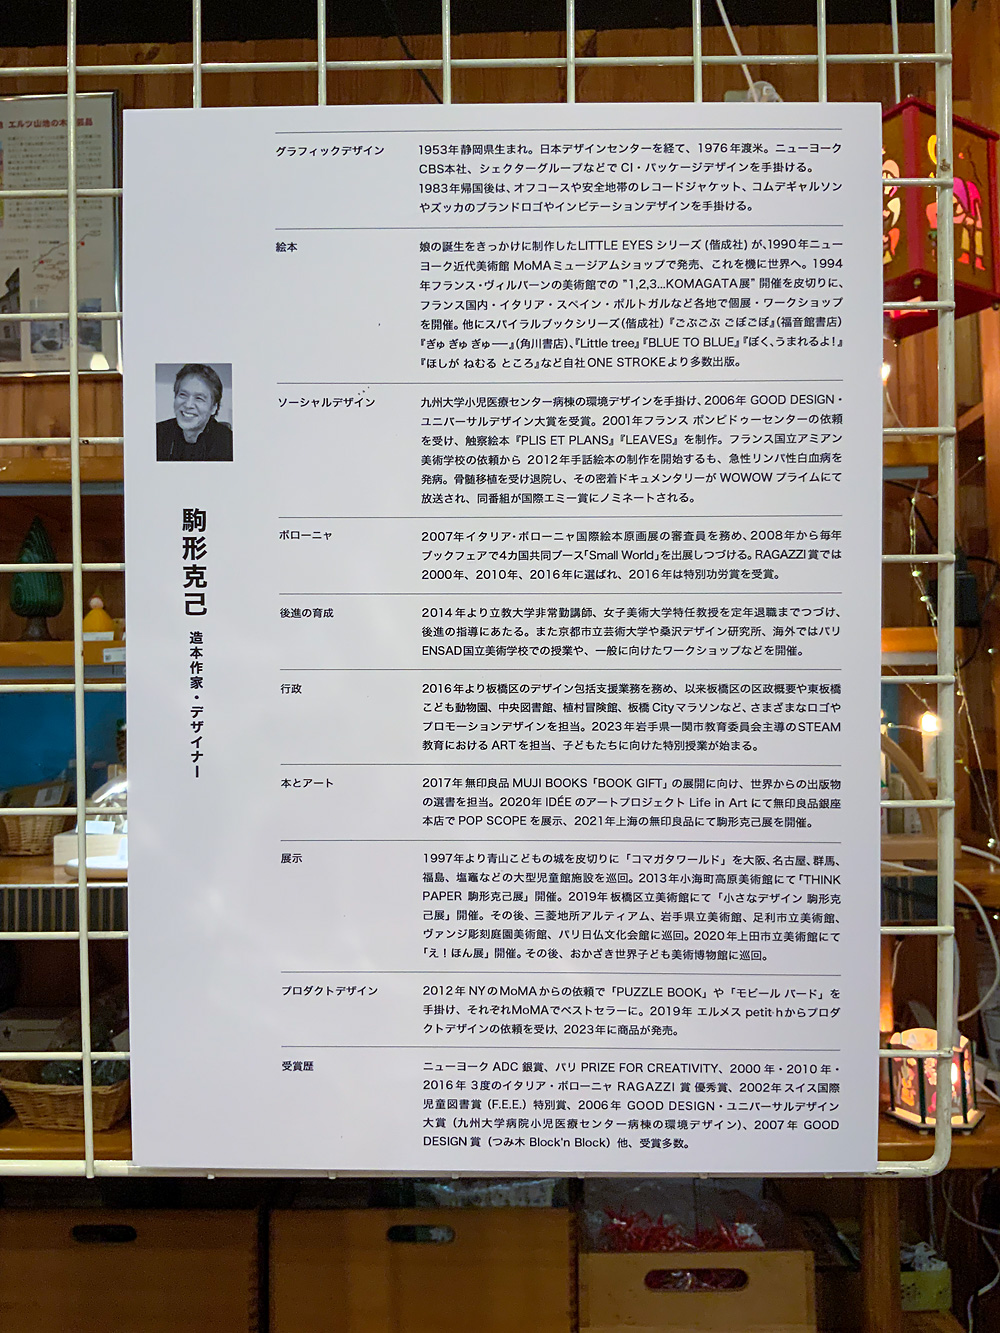 エルツ山地の木
駒形克己 造本作家・デザイナー
グラフィックデザイン
1953年静岡県生まれ。日本デザインセンターを経て、1976年渡米。ニューヨーク
CBS本社、シェクターグループなどで CI・パッケージデザインを手掛ける。
1983年帰国後は、オフコースや安全地帯のレコードジャケット、コムデギャルソン
やズッカのブランドロゴやインビテーションデザインを手掛ける。
絵本
娘の誕生をきっかけに制作したLITTLE EYES シリーズ (偕成社) が、1990年ニュー
ヨーク近代美術館 MoMAミュージアムショップで発売、これを機に世界へ。1994
年フランス・ヴィルバーンの美術館での "1,2,3...KOMAGATA展" 開催を皮切りに、
フランス国内・イタリア・スペイン・ポルトガルなど各地で個展・ワークショップ
を開催。他にスパイラルブックシリーズ(偕成社)『ごぶごぶ ごぼごぼ』(福音館書店)
『ぎゅ ぎゅ ぎゅー』(角川書店)、『Little tree』『BLUE TO BLUE』『ぼく、うまれるよ!』
『ほしが ねむる ところ』など自社 ONE STROKEより多数出版。
ソーシャルデザイン
九州大学小児医療センター病棟の環境デザインを手掛け、2006年 GOOD DESIGN・
ユニバーサルデザイン大賞を受賞。2001年フランス ポンピドゥーセンターの依頼
を受け、触察絵本『PLIS ET PLANS』『LEAVES』を制作。フランス国立アミアン
美術学校の依頼から 2012年手話絵本の制作を開始するも、急性リンパ性白血病を
発病。骨髄移植を受け退院し、その密着ドキュメンタリーが WOWOW プライムにて
放送され、同番組が国際エミー賞にノミネートされる。
ボローニャ
2007年イタリア・ボローニャ国際絵本原画展の審査員を務め、2008年から毎年
ブックフェアで4カ国共同ブース「Small World」を出展しつづける。RAGAZZI 賞では
2000年、2010年、2016年に選ばれ、2016年は特別功労賞を受賞。
後進の育成
2014年より立教大学非常勤講師、女子美術大学特任教授を定年退職までつづけ、
後進の指導にあたる。また京都市立芸術大学や桑沢デザイン研究所、海外ではパリ
ENSAD国立美術学校での授業や、一般に向けたワークショップなどを開催。
行政
2016年より板橋区のデザイン包括支援業務を務め、以来板橋区の区政概要や東板橋
こども動物園、中央図書館、植村冒険館、板橋 City マラソンなど、さまざまなロゴや
プロモーションデザインを担当。2023年岩手県一関市教育委員会主導のSTEAM
教育における ARTを担当、子どもたちに向けた特別授業が始まる。
本とアート
2017年無印良品 MUJI BOOKS「BOOK GIFT」の展開に向け、世界からの出版物
の選書を担当。2020年 IDÉE のアートプロジェクト Life in Art にて無印良品銀座
本店で POP SCOPE を展示、2021年上海の無印良品にて駒形克己展を開催。
展示
1997年より青山こどもの城を皮切りに「コマガタワールド」を大阪、名古屋、群馬、
福島、塩竈などの大型児童館施設を巡回。2013年小海町高原美術館にて「THINK
PAPER 駒形克己展」開催。2019年板橋区立美術館にて「小さなデザイン 駒形克
己展」開催。その後、三菱地所アルティアム、岩手県立美術館、足利市立美術館、
ヴァンジ彫刻庭園美術館、パリ日仏文化会館に巡回。2020年上田市立美術館にて
「え!ほん展」開催。その後、おかざき世界子ども美術博物館に巡回。
プロダクトデザイン
2012年 NYのMoMAからの依頼で「PUZZLE BOOK」や「モビール バード」を
手掛け、それぞれMoMAでベストセラーに。2019年 エルメス petit hからプロダ
クトデザインの依頼を受け、2023年に商品が発売。
受賞歴
ニューヨーク ADC 銀賞、パリ PRIZE FOR CREATIVITY、2000年・2010年・
2016年 3度のイタリア・ボローニャ RAGAZZI 賞 優秀賞、2002年スイス国際
児童図書賞 (F.E.E.) 特別賞、2006年 GOOD DESIGN・ユニバーサルデザイン
大賞 (九州大学病院小児医療センター病棟の環境デザイン)、2007年 GOOD
DESIGN賞 (つみ木 Block'n Block) 他、受賞多数。